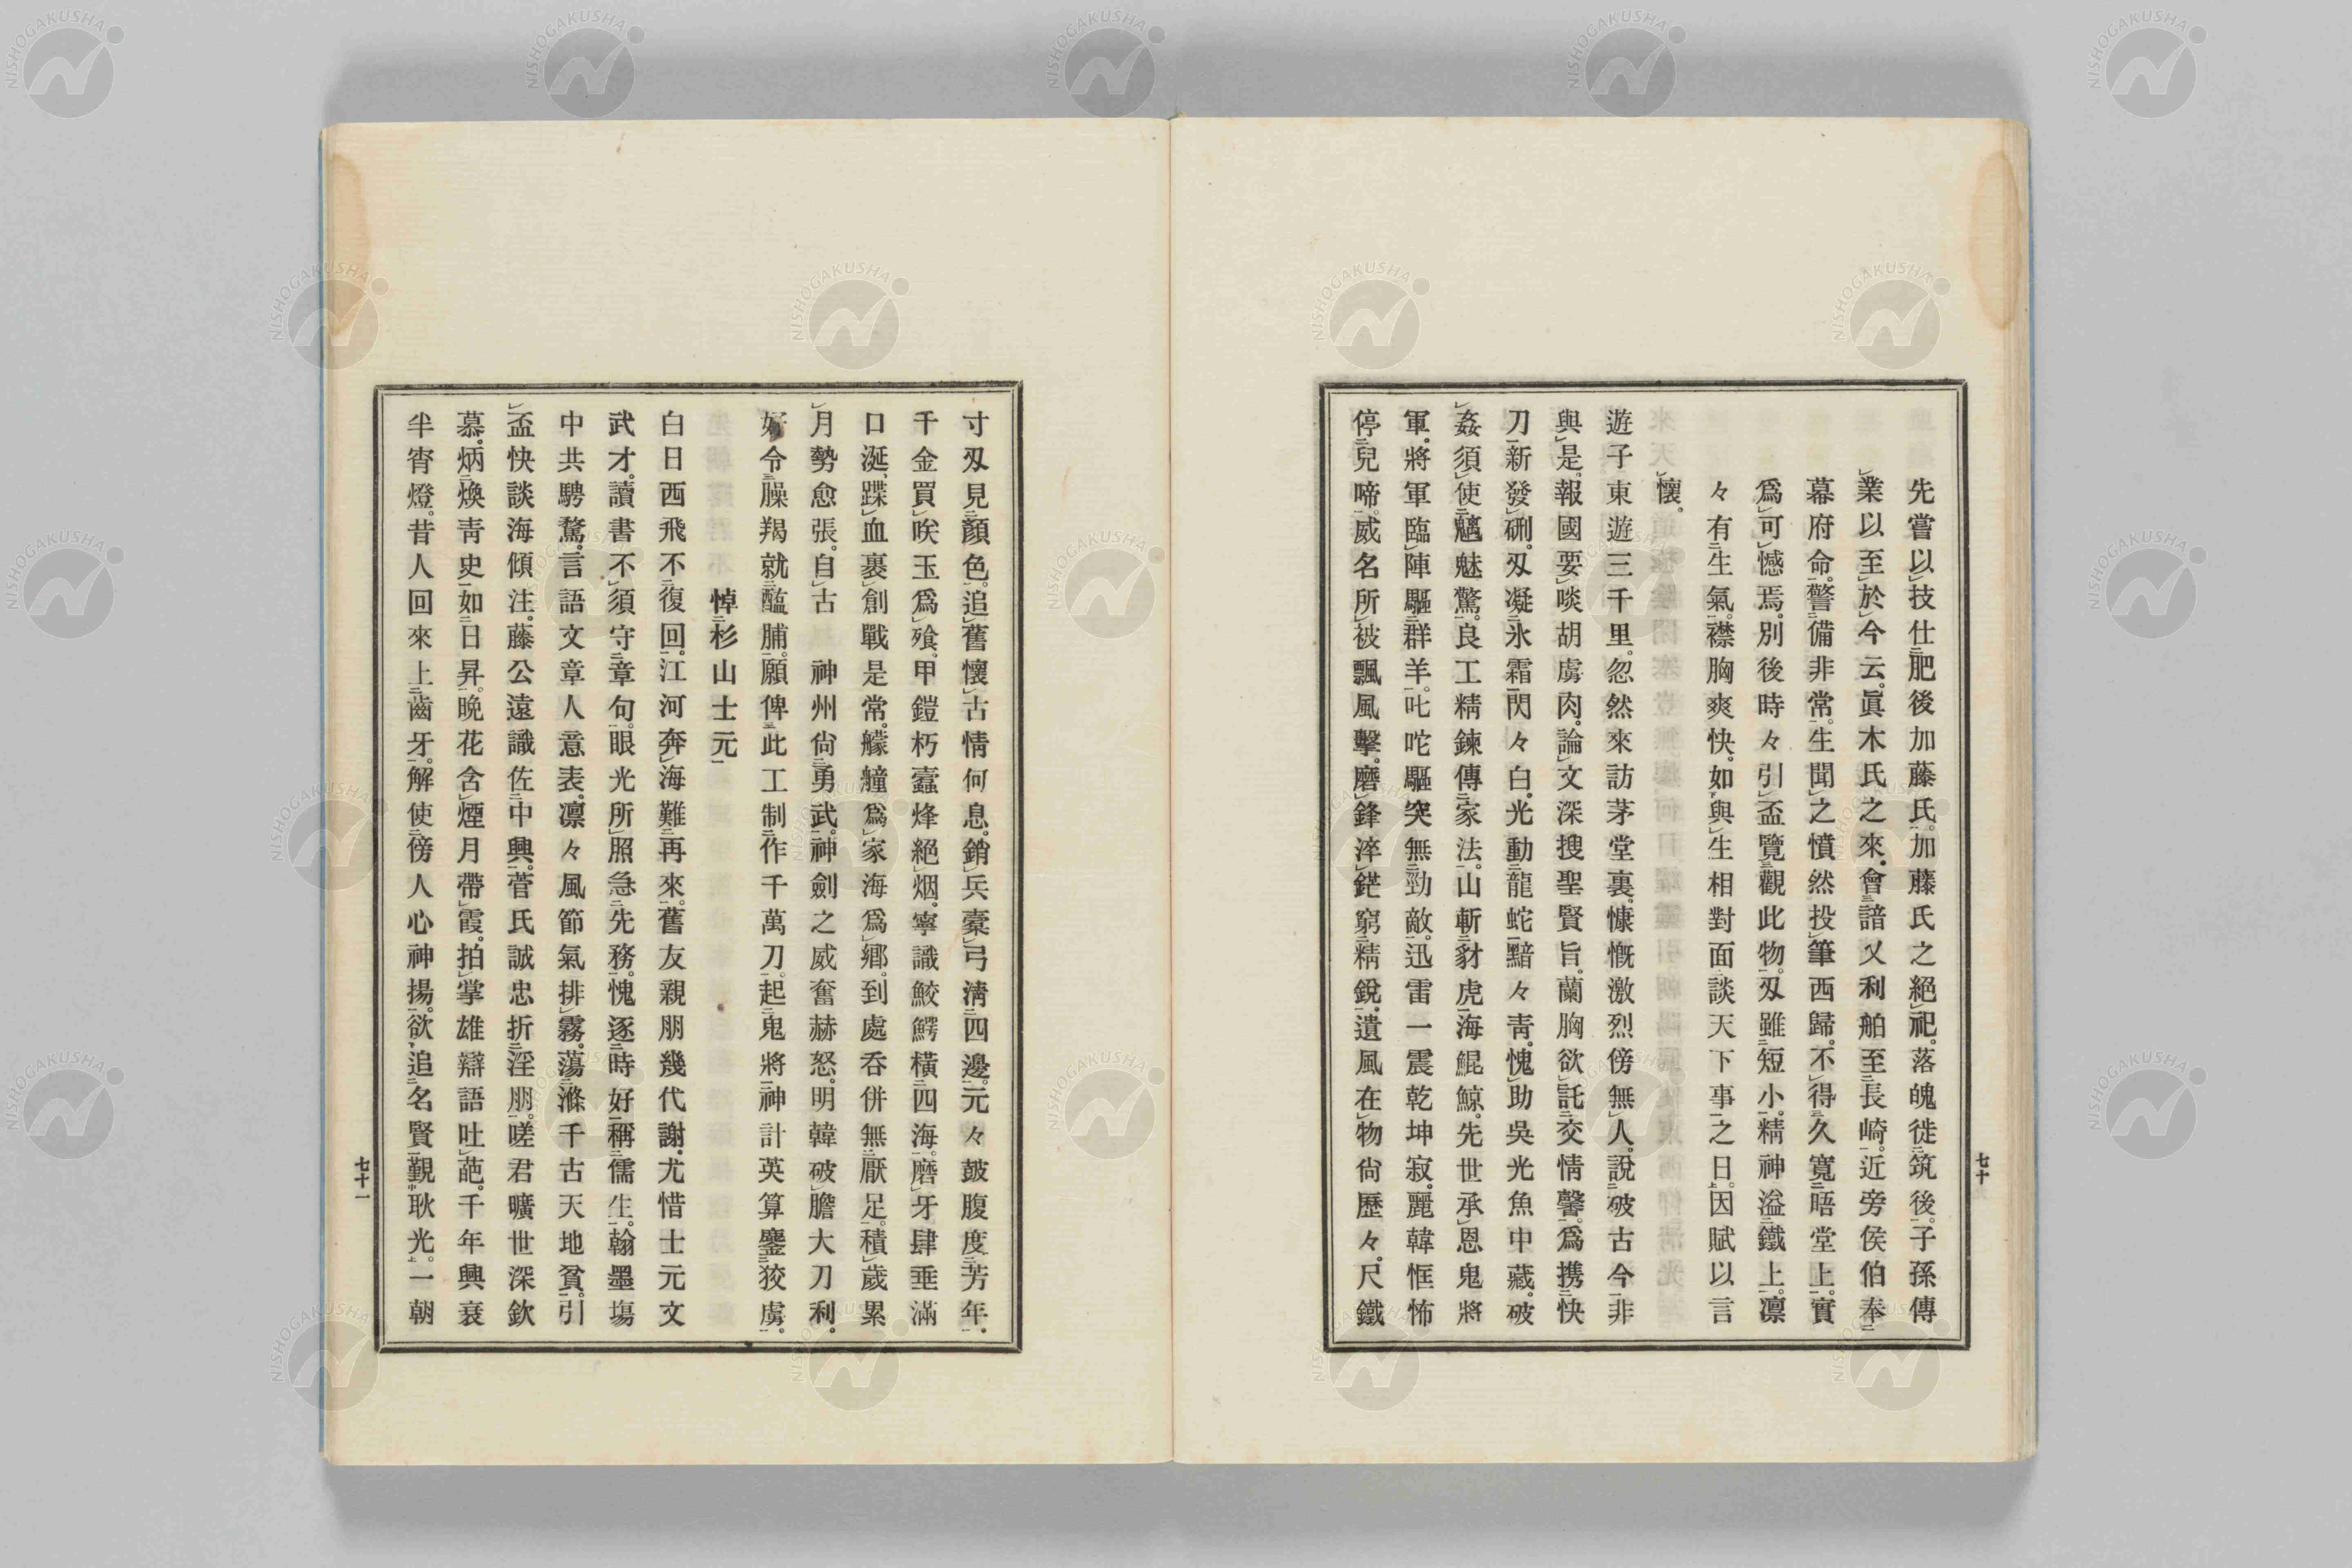 先嘗以技仕肥後加藤氏。加藤氏之絕祀。落魄徙筑後。子孫傳
業以至於今云。眞木氏之來。會諳乂利舶至長崎。近旁侯伯奉
幕府命。警備非常。生聞之憤然投筆西歸。不得久寬晤堂上。實
爲可憾焉。別後時々引盃覽觀此物。刄雖短小。精神溢鐵上。凛
々有生氣。襟胸爽快。如與生相對面談天下事之日。因賦以言
懷。
遊子東遊三千里。忽然來訪茅堂裏。慷慨激烈傍無人。說破古今非
與是。報國要啖胡虜肉。論文深搜聖賢旨。蘭胸欲託交情馨。爲携快
刀新發硎。刄凝氷霜閃々白。光動龍蛇黯々靑。愧助吳光魚中藏。破
姦須使魑魅驚。良工精鍊傳家法。山斬豺虎海鯤鯨。先世承恩鬼將
軍。將軍臨陣驅群羊。叱咤驅突無勁敵。迅雷一震乾坤寂。麗韓恇怖
停兒啼。威名所被飄風擊。磨鋒淬鋩窮精銳。遺風在物尙歷々。尺鐵
七十
寸刄見顏色。追舊懷古情何息。銷兵櫜弓淸四邊。元々皷腹度芳年。
千金買咲玉爲飡。甲鎧朽蠹烽絕烟。寧識鮫鰐橫四海。磨牙肆垂滿
口涎。蹀血裹創戰是常。艨艟爲家海爲鄕。到處呑併無厭足。積歲累
月勢愈張。自古神州尙勇武。神劍之威奮赫怒。明韓破膽大刀利。
好令臊羯就醢脯。願俾此工制作千萬刀。起鬼將神計英算鏖狡虜。
悼杉山士元
白日西飛不復回。江河奔海難再來。舊友親朋幾代謝。尤惜士元文
武才。讀書不須守章句。眼光所照急先務。愧逐時好稱儒生。翰墨塲
中共騁驁。言語文章人意表。凛々風節氣排霧。蕩滌千古天地貧。引
盃快談海傾注。藤公遠識佐中興。菅氏誠忠折淫朋。嗟君曠世深欽
慕。炳煥靑史如日昇。晩花含煙月帶霞。拍掌雄辯語吐葩。千年興衰
半宵燈。昔人回來上齒牙。解使傍人心神揚。欲追名賢覲耿光。一朝
七十一
NISHOGAKUSHA